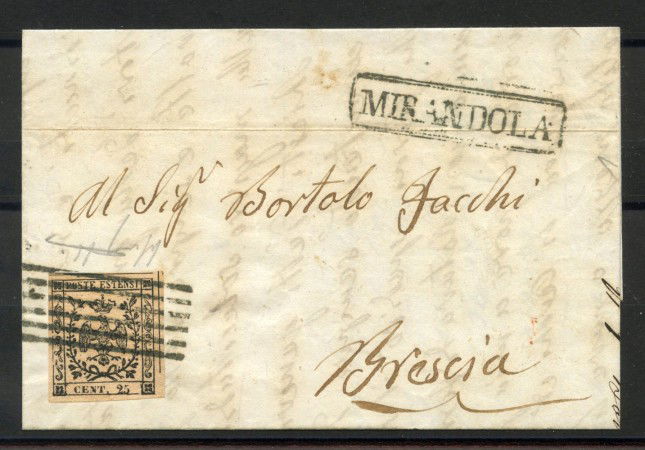 MIRANDOLA
Al Sigr Bortolo Facchi
POSTE ESTENSI
CENT. 25
Brescia